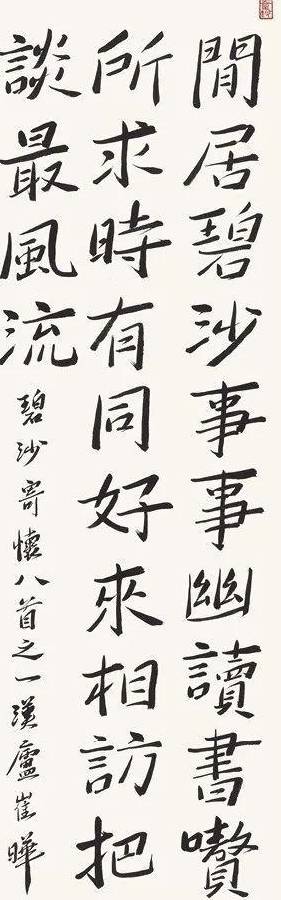 閒居碧沙事事幽讀書
所求時有同好來相訪把
談最風流
碧沙寄懷八首之一漢廬崔曄